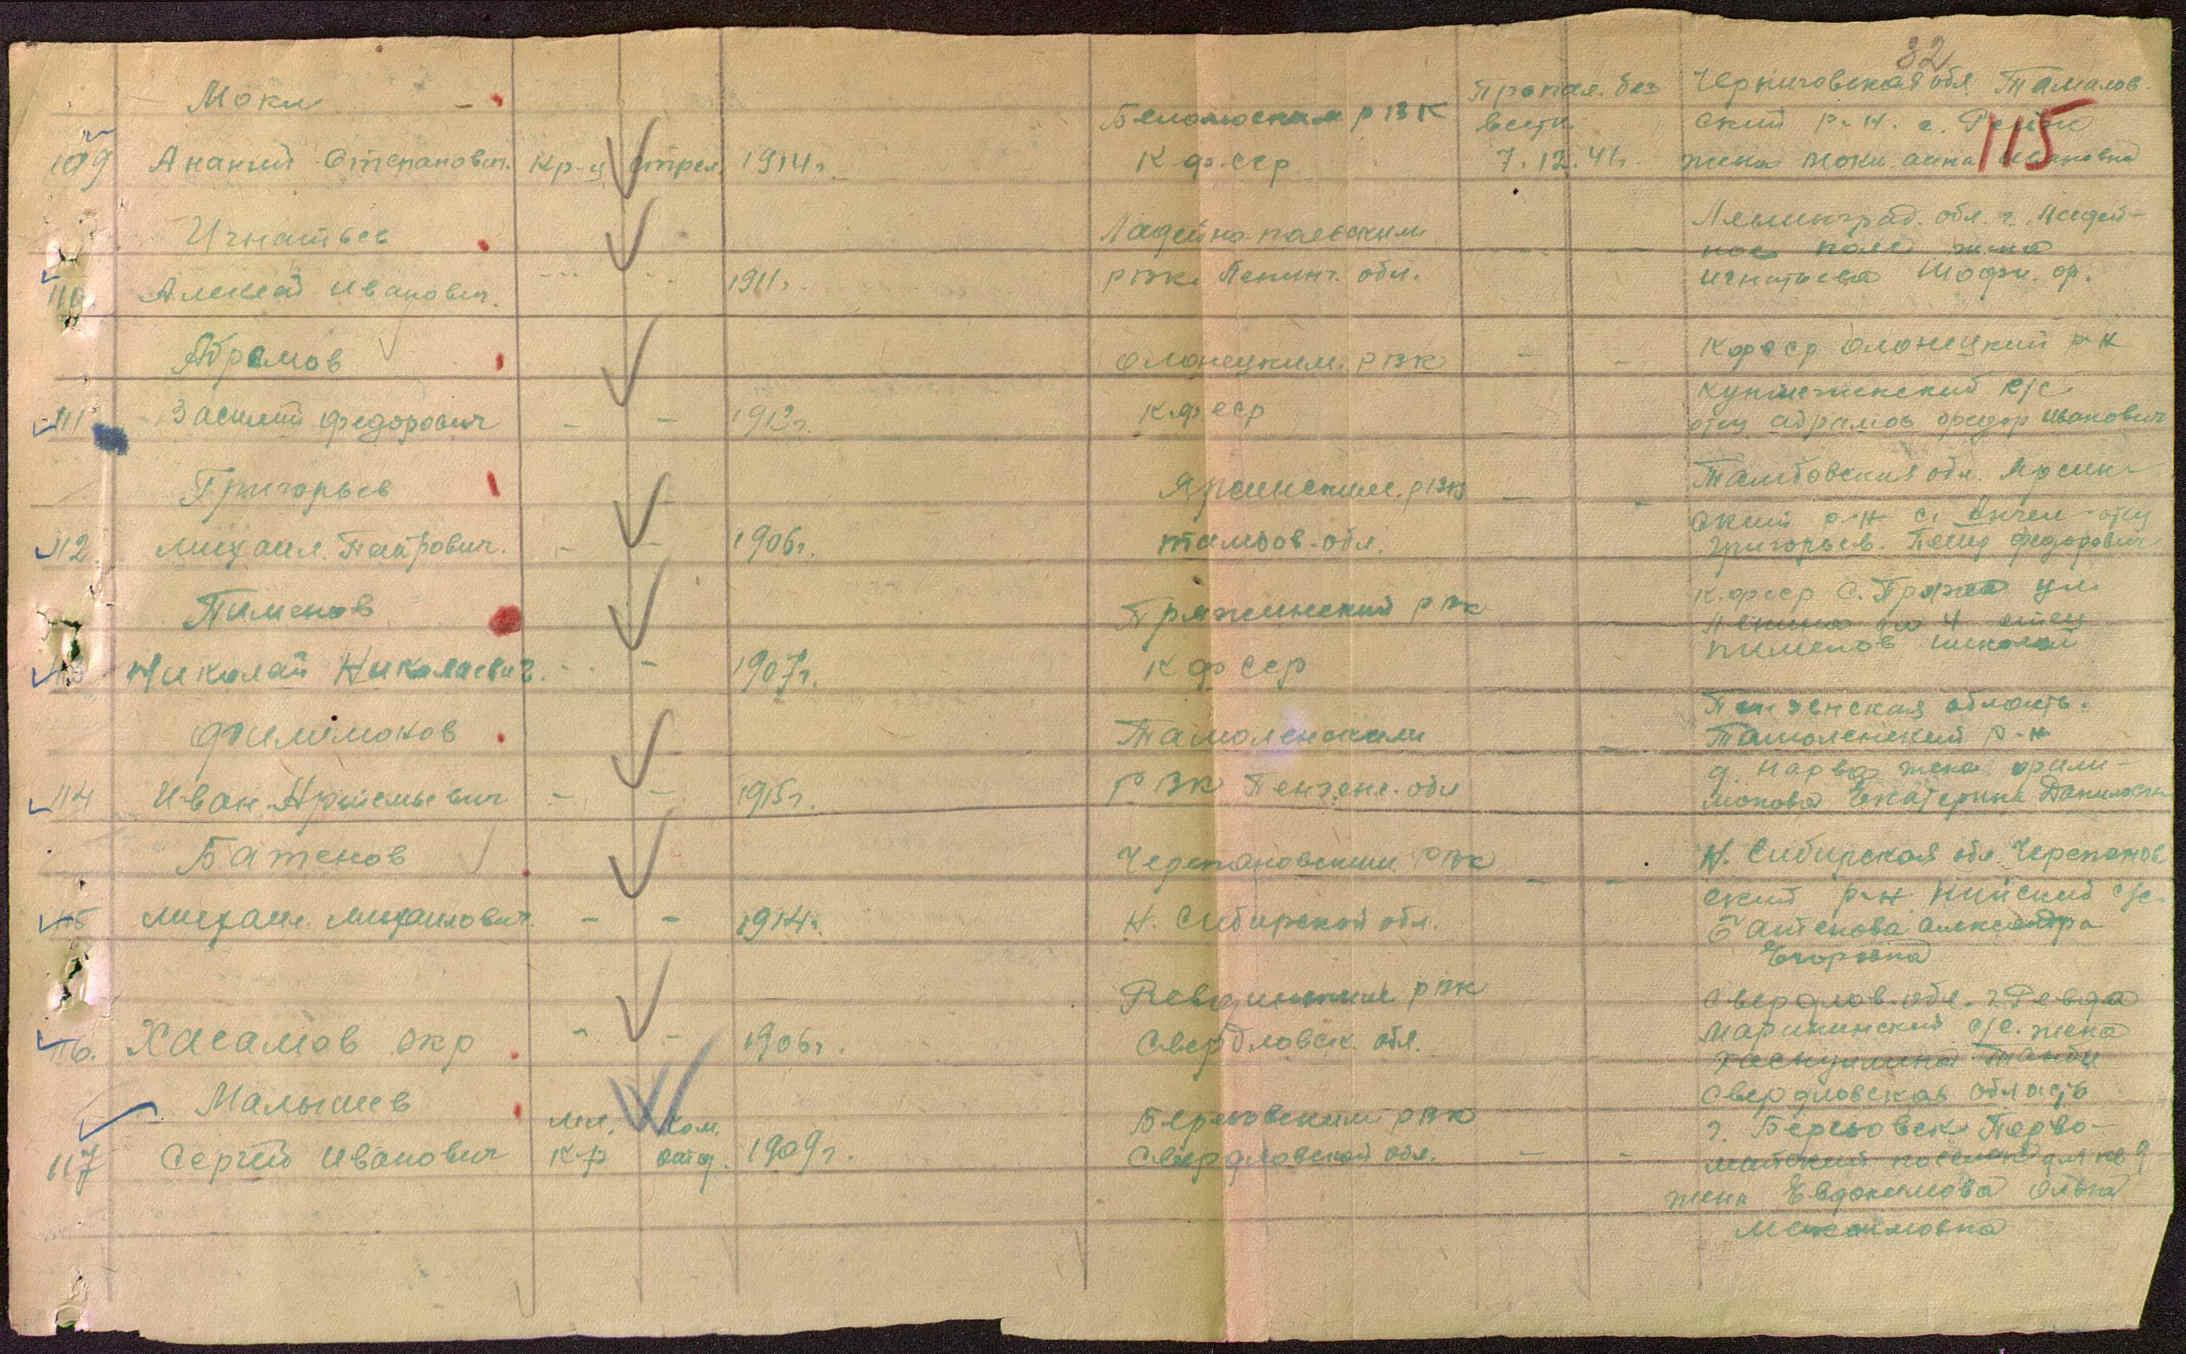 32
115
Моки
109 Ананий Степанович. Кр-ц стрел. 1914г.
Беломоским РВК
К.ф.сср
Пропал. без
вести
7.12.41г.
Черниговская обл Тамалов-
ский р-н. с.
жена Моки Анна Ивановна
Игнатьев
110 Алексей Иванович. 1911г.
Ладейнопольским
РВК. Ленинг. обл.
Ленинград. обл. г. Ладей-
ное поле жена
Игнатьева
Абрамов
111 Василий Федорович - - 1913г.
Олонецким. РВК
К.ф сср
- -
Кфсср Олонецкий р-н
с/с
отец Абрамов Федор Иванович
Григорьев
112 Михаил. Петрович. - - 1906г.
РВК
тамбов. обл.
- -
Тамбовская обл.
ский р-н с. отец
Григорьев. Петр Федорович
Пименов
113 Николай Николаевич. - - 1907г.
Пряжинский РВК
К ф сср
К.фсср С. Пряжа ул.
Ленина 4 отец
Пименов Николай
Филимонов
114 Иван Артемьевич - - 1915г.
Тамоленским
РВК Пензенс. обл
Пензенская область.
Тамоленский р-н
д. жена Фили-
монова Екатерина Даниловн
Баженов
115 Михаил. Михайлович. - - 1914г.
Черепановским РВК
Н. Сибирской обл.
- -
Н. Сибирская обл. Черепанов
ский р-н с/с.
Баженова Александра
Егоровна
116. Хасамов Окр - 1906г.
Ревдинским РВК
Свердловск. обл.
Свердлов. обл. г. Ревда
Мариинский с/с. жена
Малышев
117 Сергей Иванович мл. ком. К-р отд. 1909г.
Березовским РВК
Свердловской обл.
- -
Свердловская область
г. Березовск Перво-
майский поселок
жена Евдокимова
Максимовна